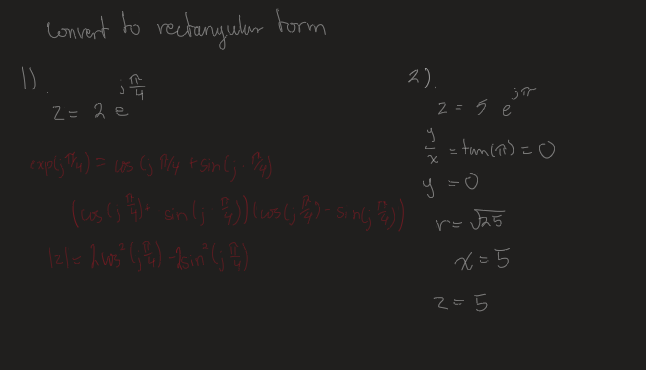 convert to rectangular form
1).
z = 2 e^{j π/4}
exp(j π/4) = cos(j π/4 + sin(j · π/4)
(cos(j π/4) + sin(j π/4))(cos(j π/4) - sin(j π/4))
|z| = 2cos²(j π/4) - 2sin²(j π/4)
2).
z = 5 e^{jπ}
y/x = tan(π) = 0
y = 0
r = √25
x = 5
z = 5